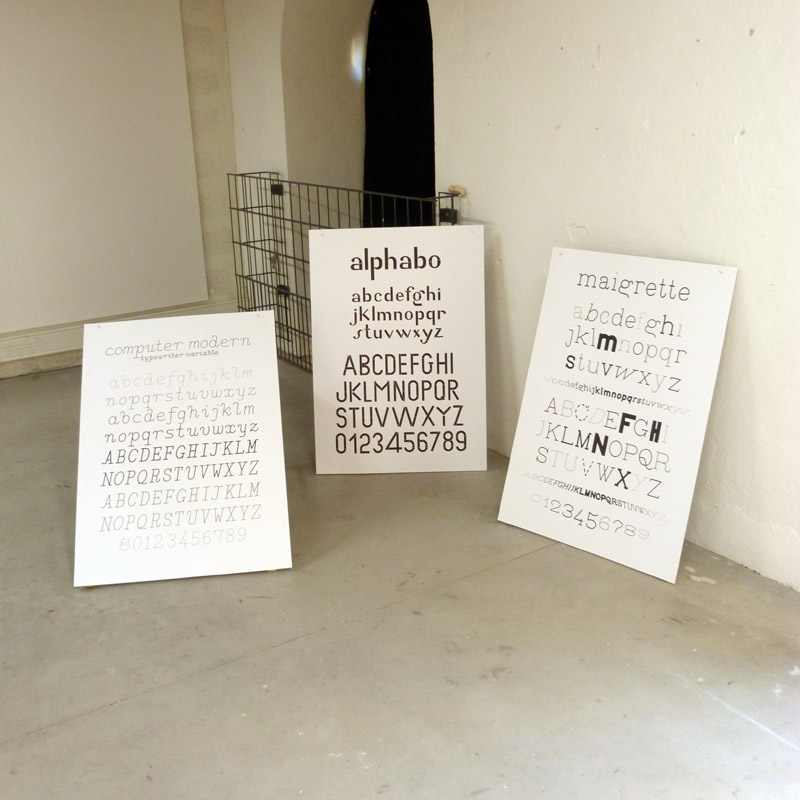 computer modern
typewriter variable
abcdefghijklm
nopqrstuvwxyz
abcdefghijklm
nopqrstuvwxyz
ABCDEFGHIJKLM
NOPQRSTUVWXYZ
ABCDEFGHIJKLM
NOPQRSTUVWXYZ
&0123456789
alphabo
abcdefghi
jklmnopqr
stuvwxyz
ABCDEFGHI
JKLMNOPQR
STUVWXYZ
0123456789
maigrette
abcdefghi
jklmnopqr
stuvwxyz
abcdefghijklmnopqrstuvwxyz
ABCDEFGHI
JKLMNOPQR
STUVWXYZ
ABCDEFGHIJKLMNOPQRSTUVWXYZ
0123456789